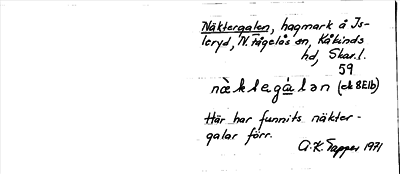 Näktergalen, hagmark å Is-
leryd, N. Fågelås sn, Kåkinds
hd, Skar.l.
59
nà̤klegá̤lən (ek 8 Elb)
Här har funnits näkter-
galar förr.
A.K. Tapper 1971